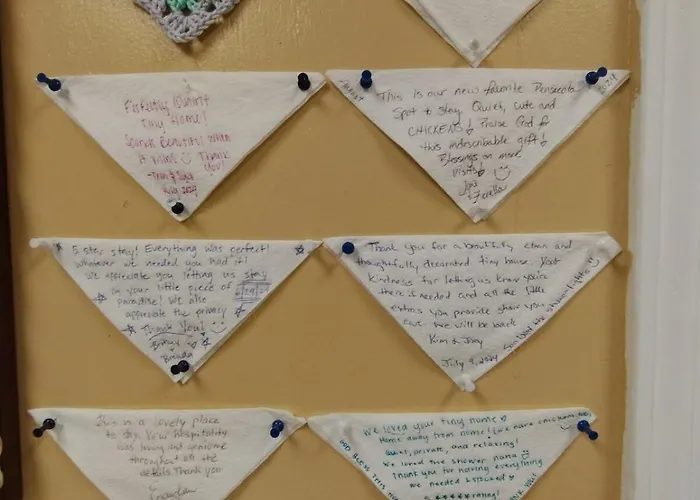 Perfectly Quaint
Tiny Home!
Sounds Beautiful when
it rains ☺ Thank
you!
July 2024
August
This is our new favorite Pensacola
Spot to stay. Quiet, cute and
CHICKENS! Praise God for
this indescribable gift!
Blessings on more
visits! ☺
2024
5 star stay! Everything was perfect!
whatever we needed you had it!
We appreciate you letting us stay
in your little piece of
paradise! We also
appreciate the privacy
Thank You! ☺
Brenda
Thank you for a beautifully, clean and
thoughtfully decorated tiny house. Your
kindness for letting us know you're
there if needed and all the little
extras you provide show you
care. We will be back
Kim & Joey
July 9, 2024
This is a lovely place
to stay. Your hospitality
was loving and genuine
throughout all the
details. Thank you
We loved your tiny home ♡
Home away from home! Love have chickens too,
Quiet, private, and relaxing!
We loved the shower
Thank you for having everything
we needed stocked!